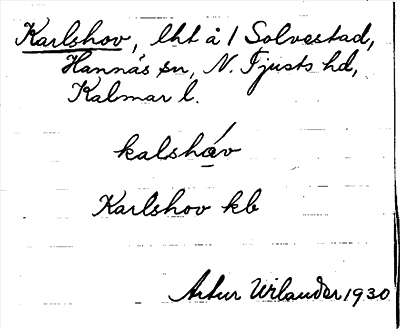 Karlshov, lht å 1 Solvestad,
Hannäs sn, N. Tjusts hd,
Kalmar l.
kalshǻv
Karlshov kb
Artur Wilander 1930